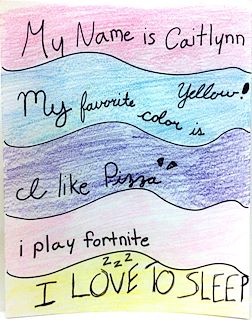 My Name is Caitlynn
My favorite color is Yellow
I like Pizza
i play fortnite
z z z
I LOVE TO SLEEP